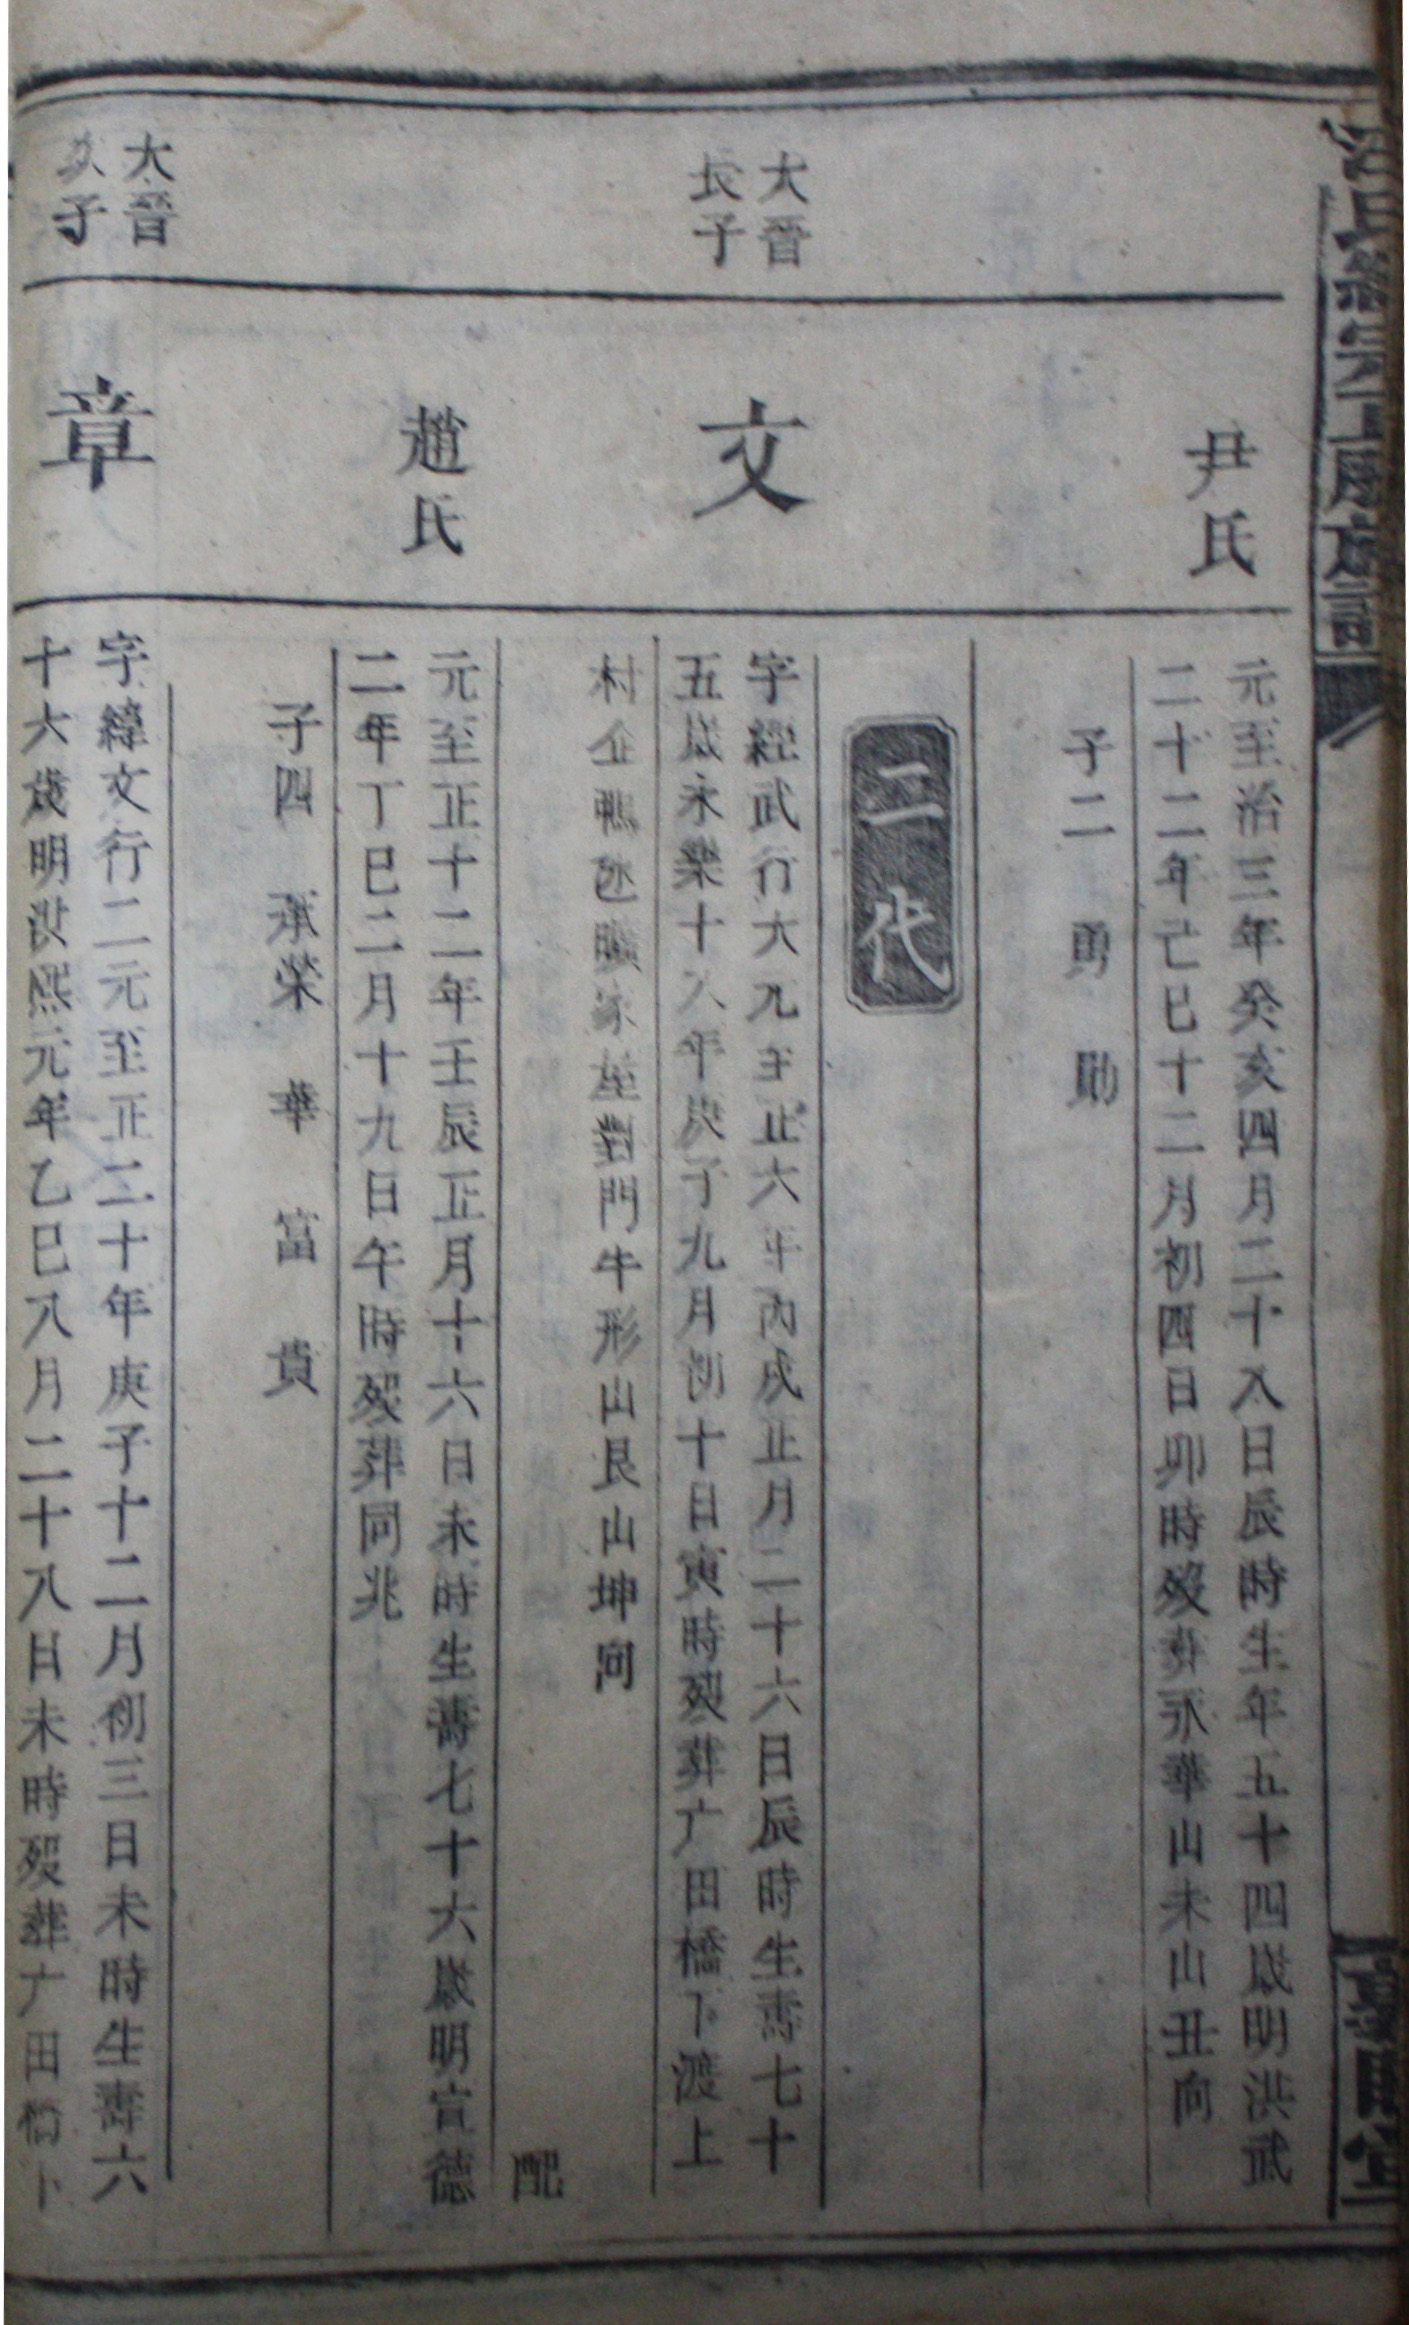 尹氏
元至治三年癸亥四月二十八日辰時生年五十四歲明洪武
二十二年己巳十二月初四日卯時歿葬永華山未山丑向
子二 勇 勛
二代
大晉
長子
文
字經武行大九至正六年丙戌正月二十六日辰時生壽七十
五歲永樂十八年庚子九月初十日寅時歿葬广田橋下渡上
村企鴨家塋對門牛形山艮山坤向
配
趙氏
元至正十二年壬辰正月十六日未時生壽七十六歲明宣德
二年丁巳二月十九日午時歿葬同兆
子四 承榮 華 富 貴
大晉
次子
章
字緯文行二元至正二十年庚子十二月初三日未時生壽六
十六歲明洪熙元年乙巳八月二十八日未時歿葬广田